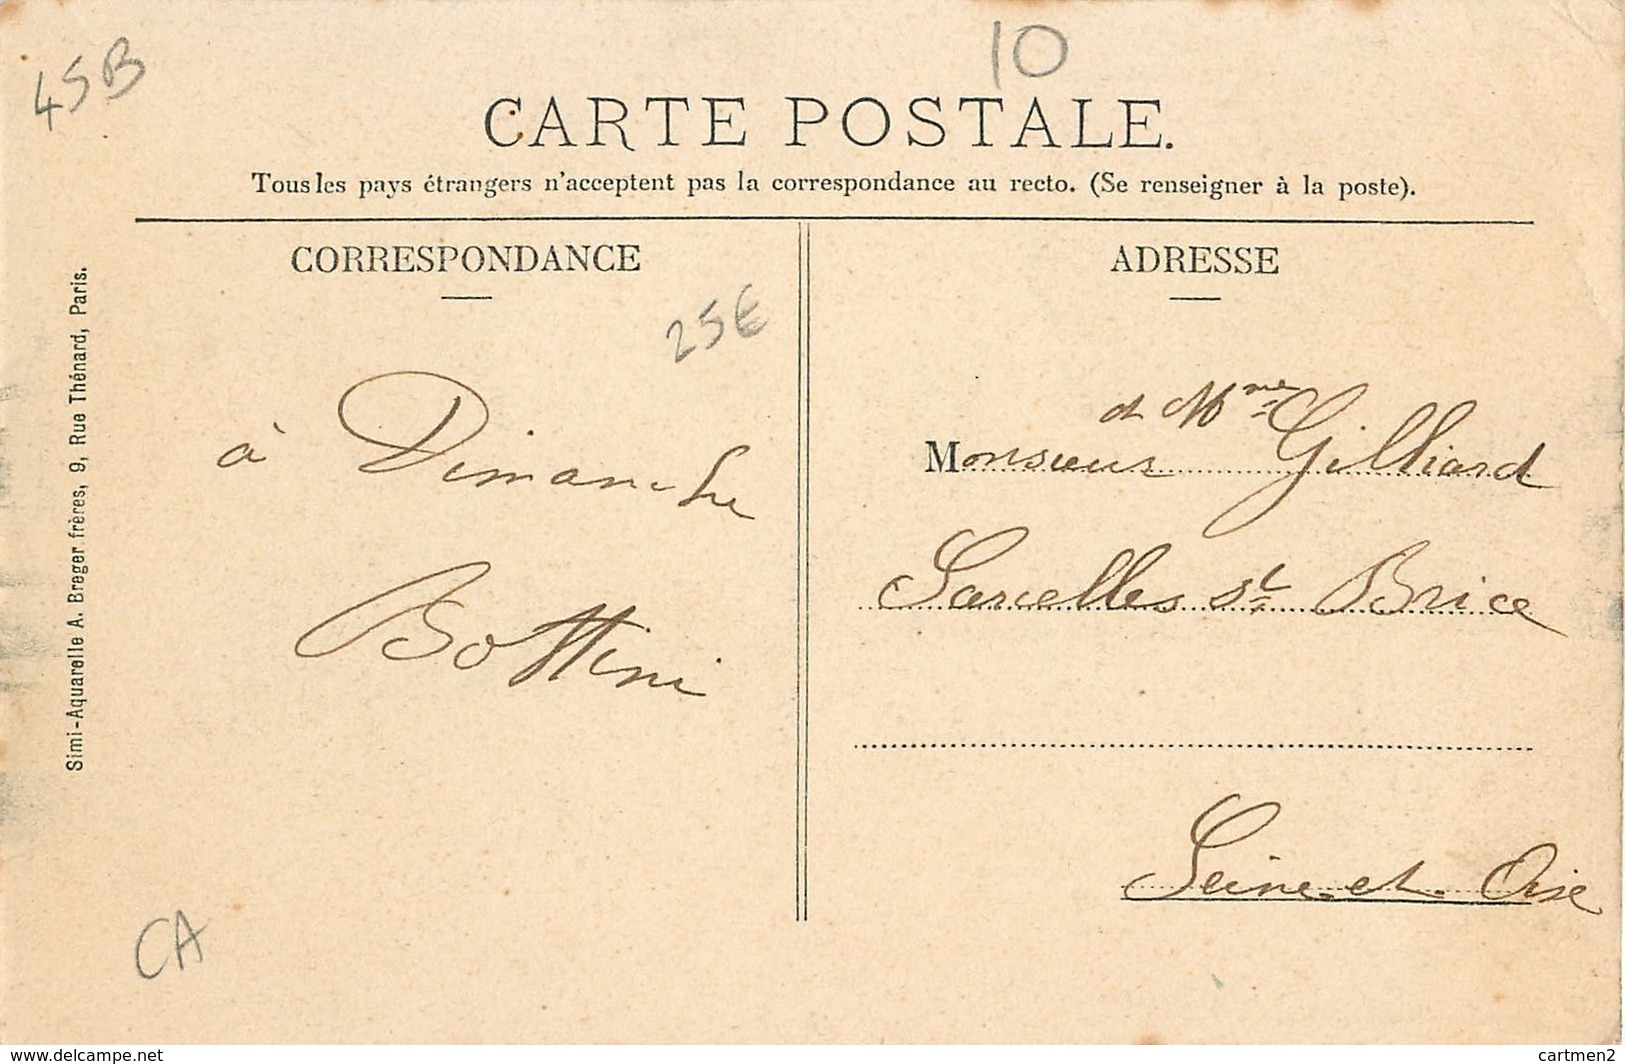 45B
10
CARTE POSTALE.
Tous les pays étrangers n'acceptent pas la correspondance au recto. (Se renseigner à la poste).
CORRESPONDANCE
25€
à Dimanche
Bottini
ADRESSE
et Mme
Monsieur Gilliard
Sarcelles St Brice
Seine et Oise
Simi-Aquarelle A. Breger frères, 9, Rue Thénard, Paris.
CA
www.delcampe.net
cartmen2